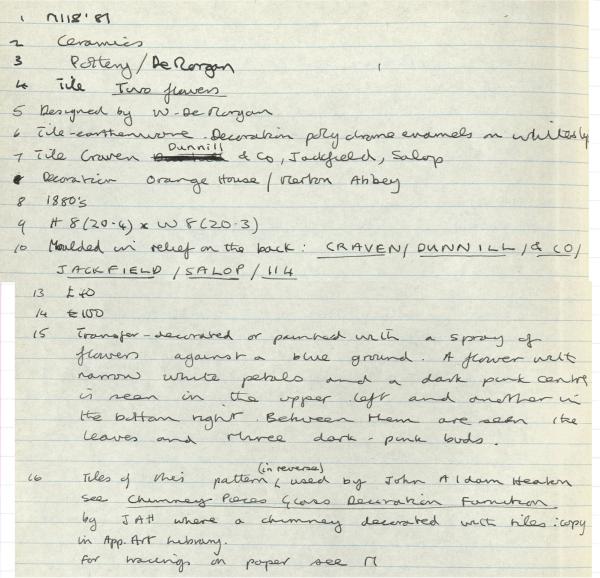 1 M118'87
2 Ceramics
3 Pottery / De Morgan
4 Tile Two flowers
5 Designed by W. De Morgan
6 Tile-earthenware. Decoration polychrome enamels on white slip
7 Tile Craven Dunnill & Co, Jackfield, Salop
Decoration Orange House / Merton Abbey
8 1880's
9 H 8(20.4) x W 8(20.3)
10 Moulded in relief on the back: CRAVEN / DUNNILL / & CO /
JACKFIELD / SALOP / 114
13 £40
14 £100
15 Transfer-decorated or painted with a spray of
flowers against a blue ground. A flower with
narrow white petals and a dark pink centre
is seen in the upper left and another in
the bottom right. Between them are seen the
leaves and three dark-pink buds.
16 Tiles of this pattern (in reverse) used by John Aldam Heaton
see Chimney Pieces Glass Decoration Furniture
by JAH where a chimney decorated with tiles: copy
in App. Art Library.
For tracings on paper see M